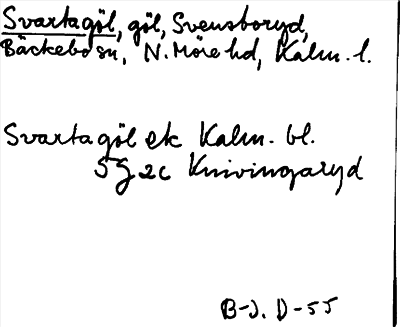 Svartagöl, göl, Svensboryd,
Bäckebo sn, N. Möre hd, Kalm. l.
Svartagöl ek Kalm. bl.
5G 2c Knivingaryd
B-J. D-55